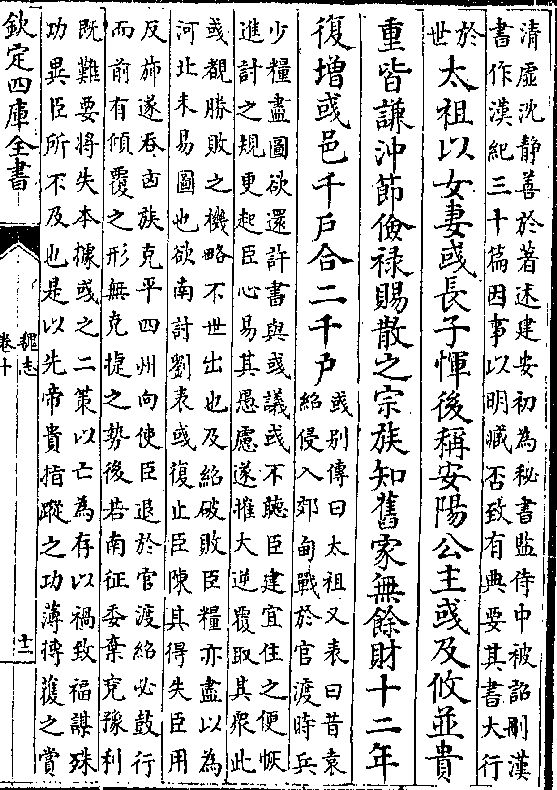 清虛沈静善於著述建安初為秘書監侍中被詔刪漢
書作漢紀三十篇因事以明臧否致有典要其書大行
於世太祖以女妻彧長子惲後稱安陽公主彧及攸並貴
重皆謙冲節儉祿賜散之宗族知舊家無餘財十二年
復增彧邑千戶合二千戶
彧别傳曰太祖又表曰昔袁
紹侵入郊甸戰於官渡時兵
少糧盡圖欲還許書與彧議彧不聽臣建宜住之便恢
進討之規更起臣心易其愚慮遂摧大逆覆取其衆此
彧覩勝敗之機略不世出也及紹破敗臣糧亦盡以為
河北未易圖也欲南討劉表彧復止臣陳其得失臣用
反斾遂吞凶族克平四州向使臣退於官渡紹必鼓行
而前有傾覆之形無克捷之勢後若南征委棄兖豫利
既難要將失本據彧之二策以亡為存以禍致福謀殊
功異臣所不及也是以先帝貴指蹤之功薄搏獲之賞
欽定四庫全書
魏志
卷十
十二